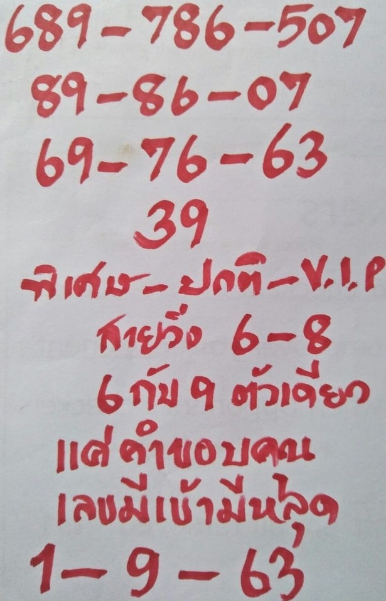 689-786-507
89-86-07
69-76-63
39
พิเศษ-ปกติ-V.I.P
สายวิ่ง 6-8
6 กับ 9 ตัวเดียว
แค่คำขอบคุณ
เลขมีเข้ามีหลุด
1-9-63